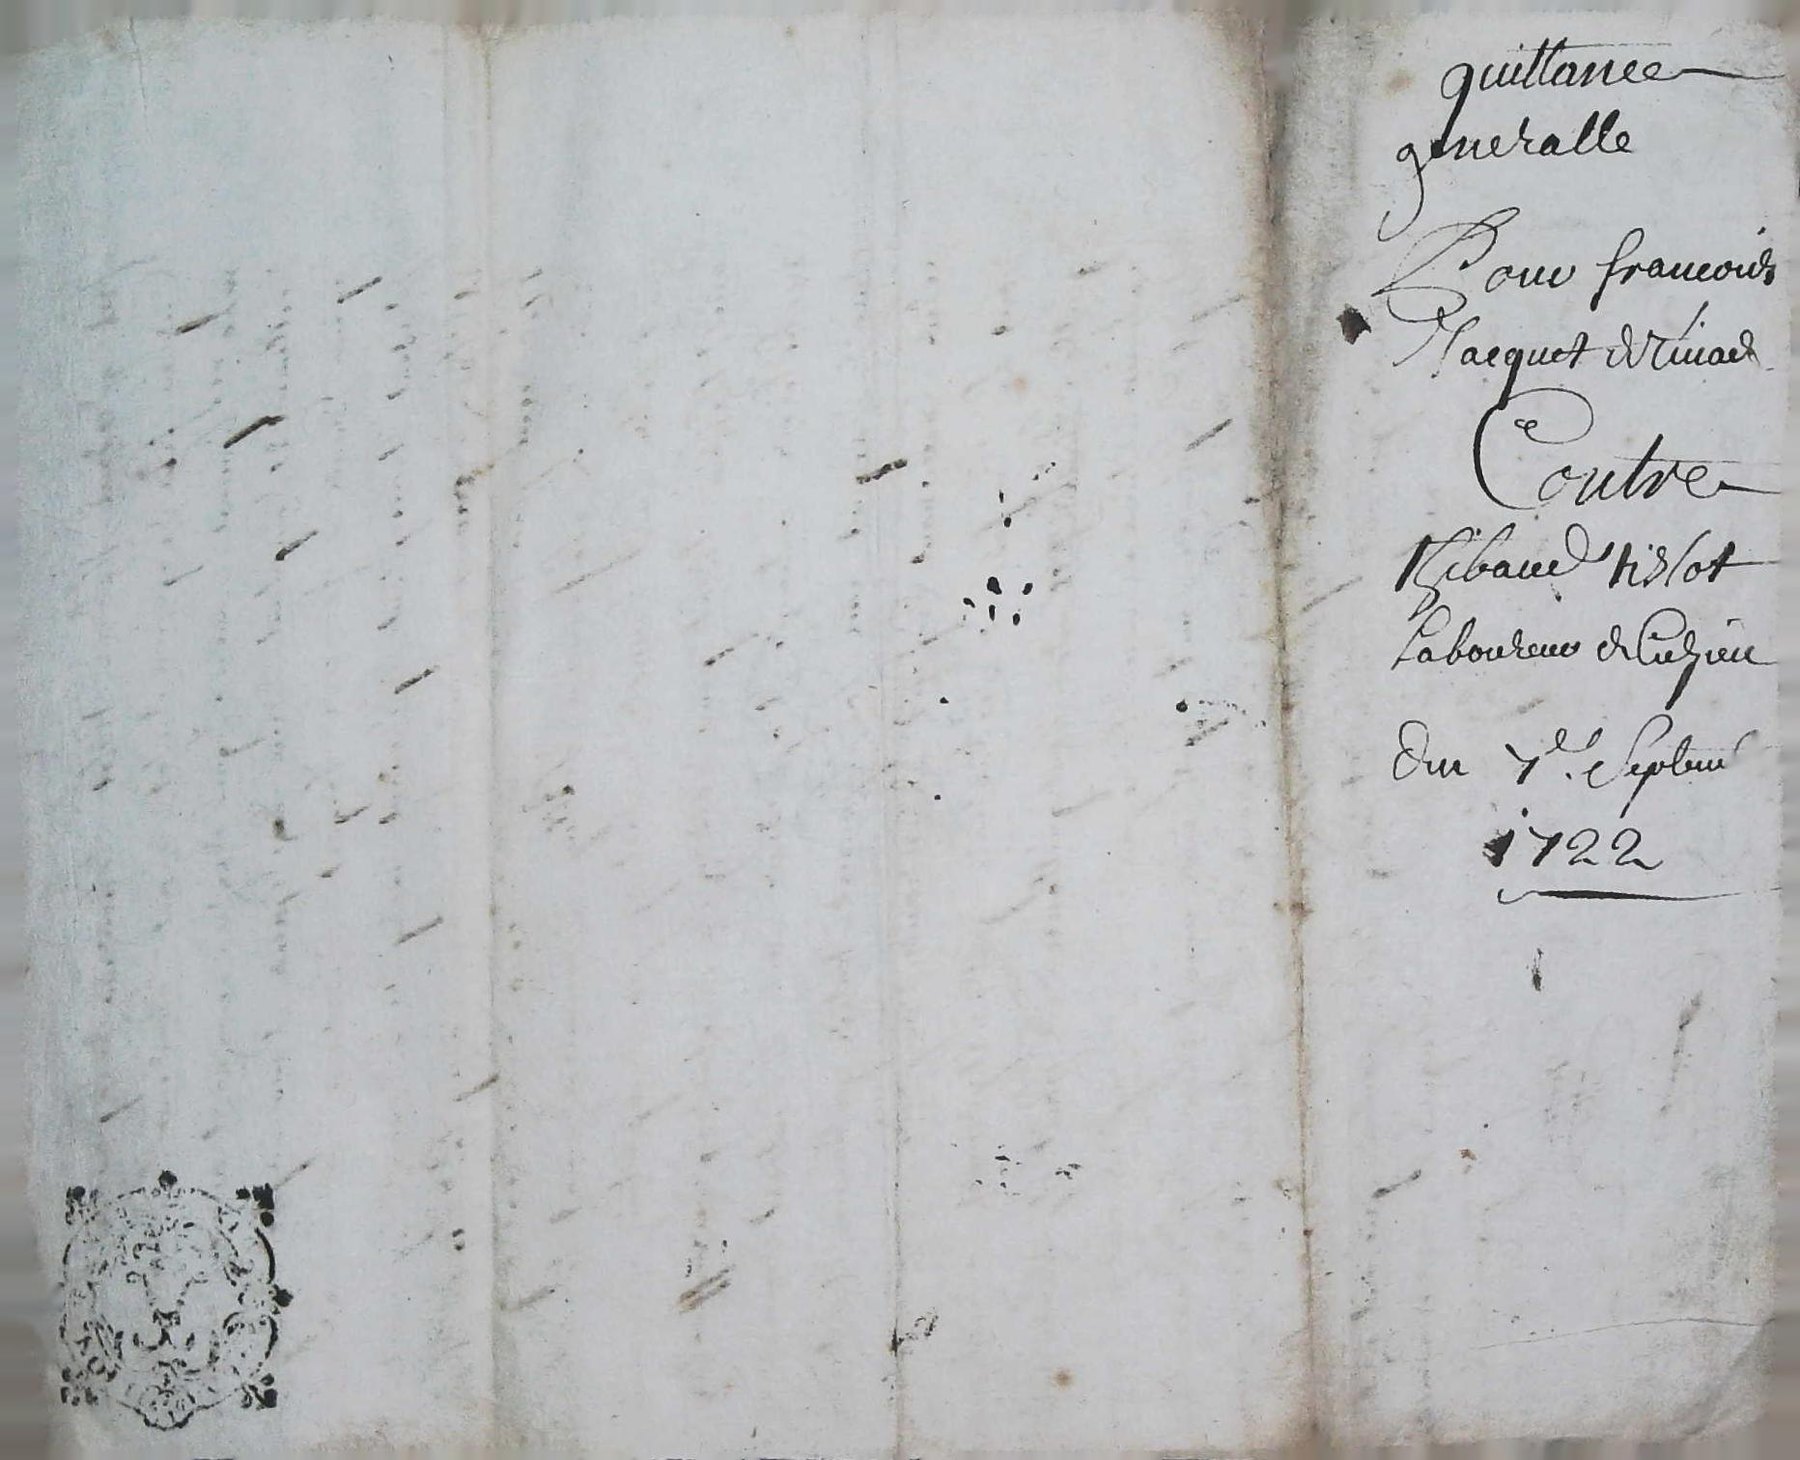 quittance
generalle
Pour francois
Jacquet de
Contre
Thibaud tissot
Laboureur de Cuzieu
Du 7e. Septem
1722